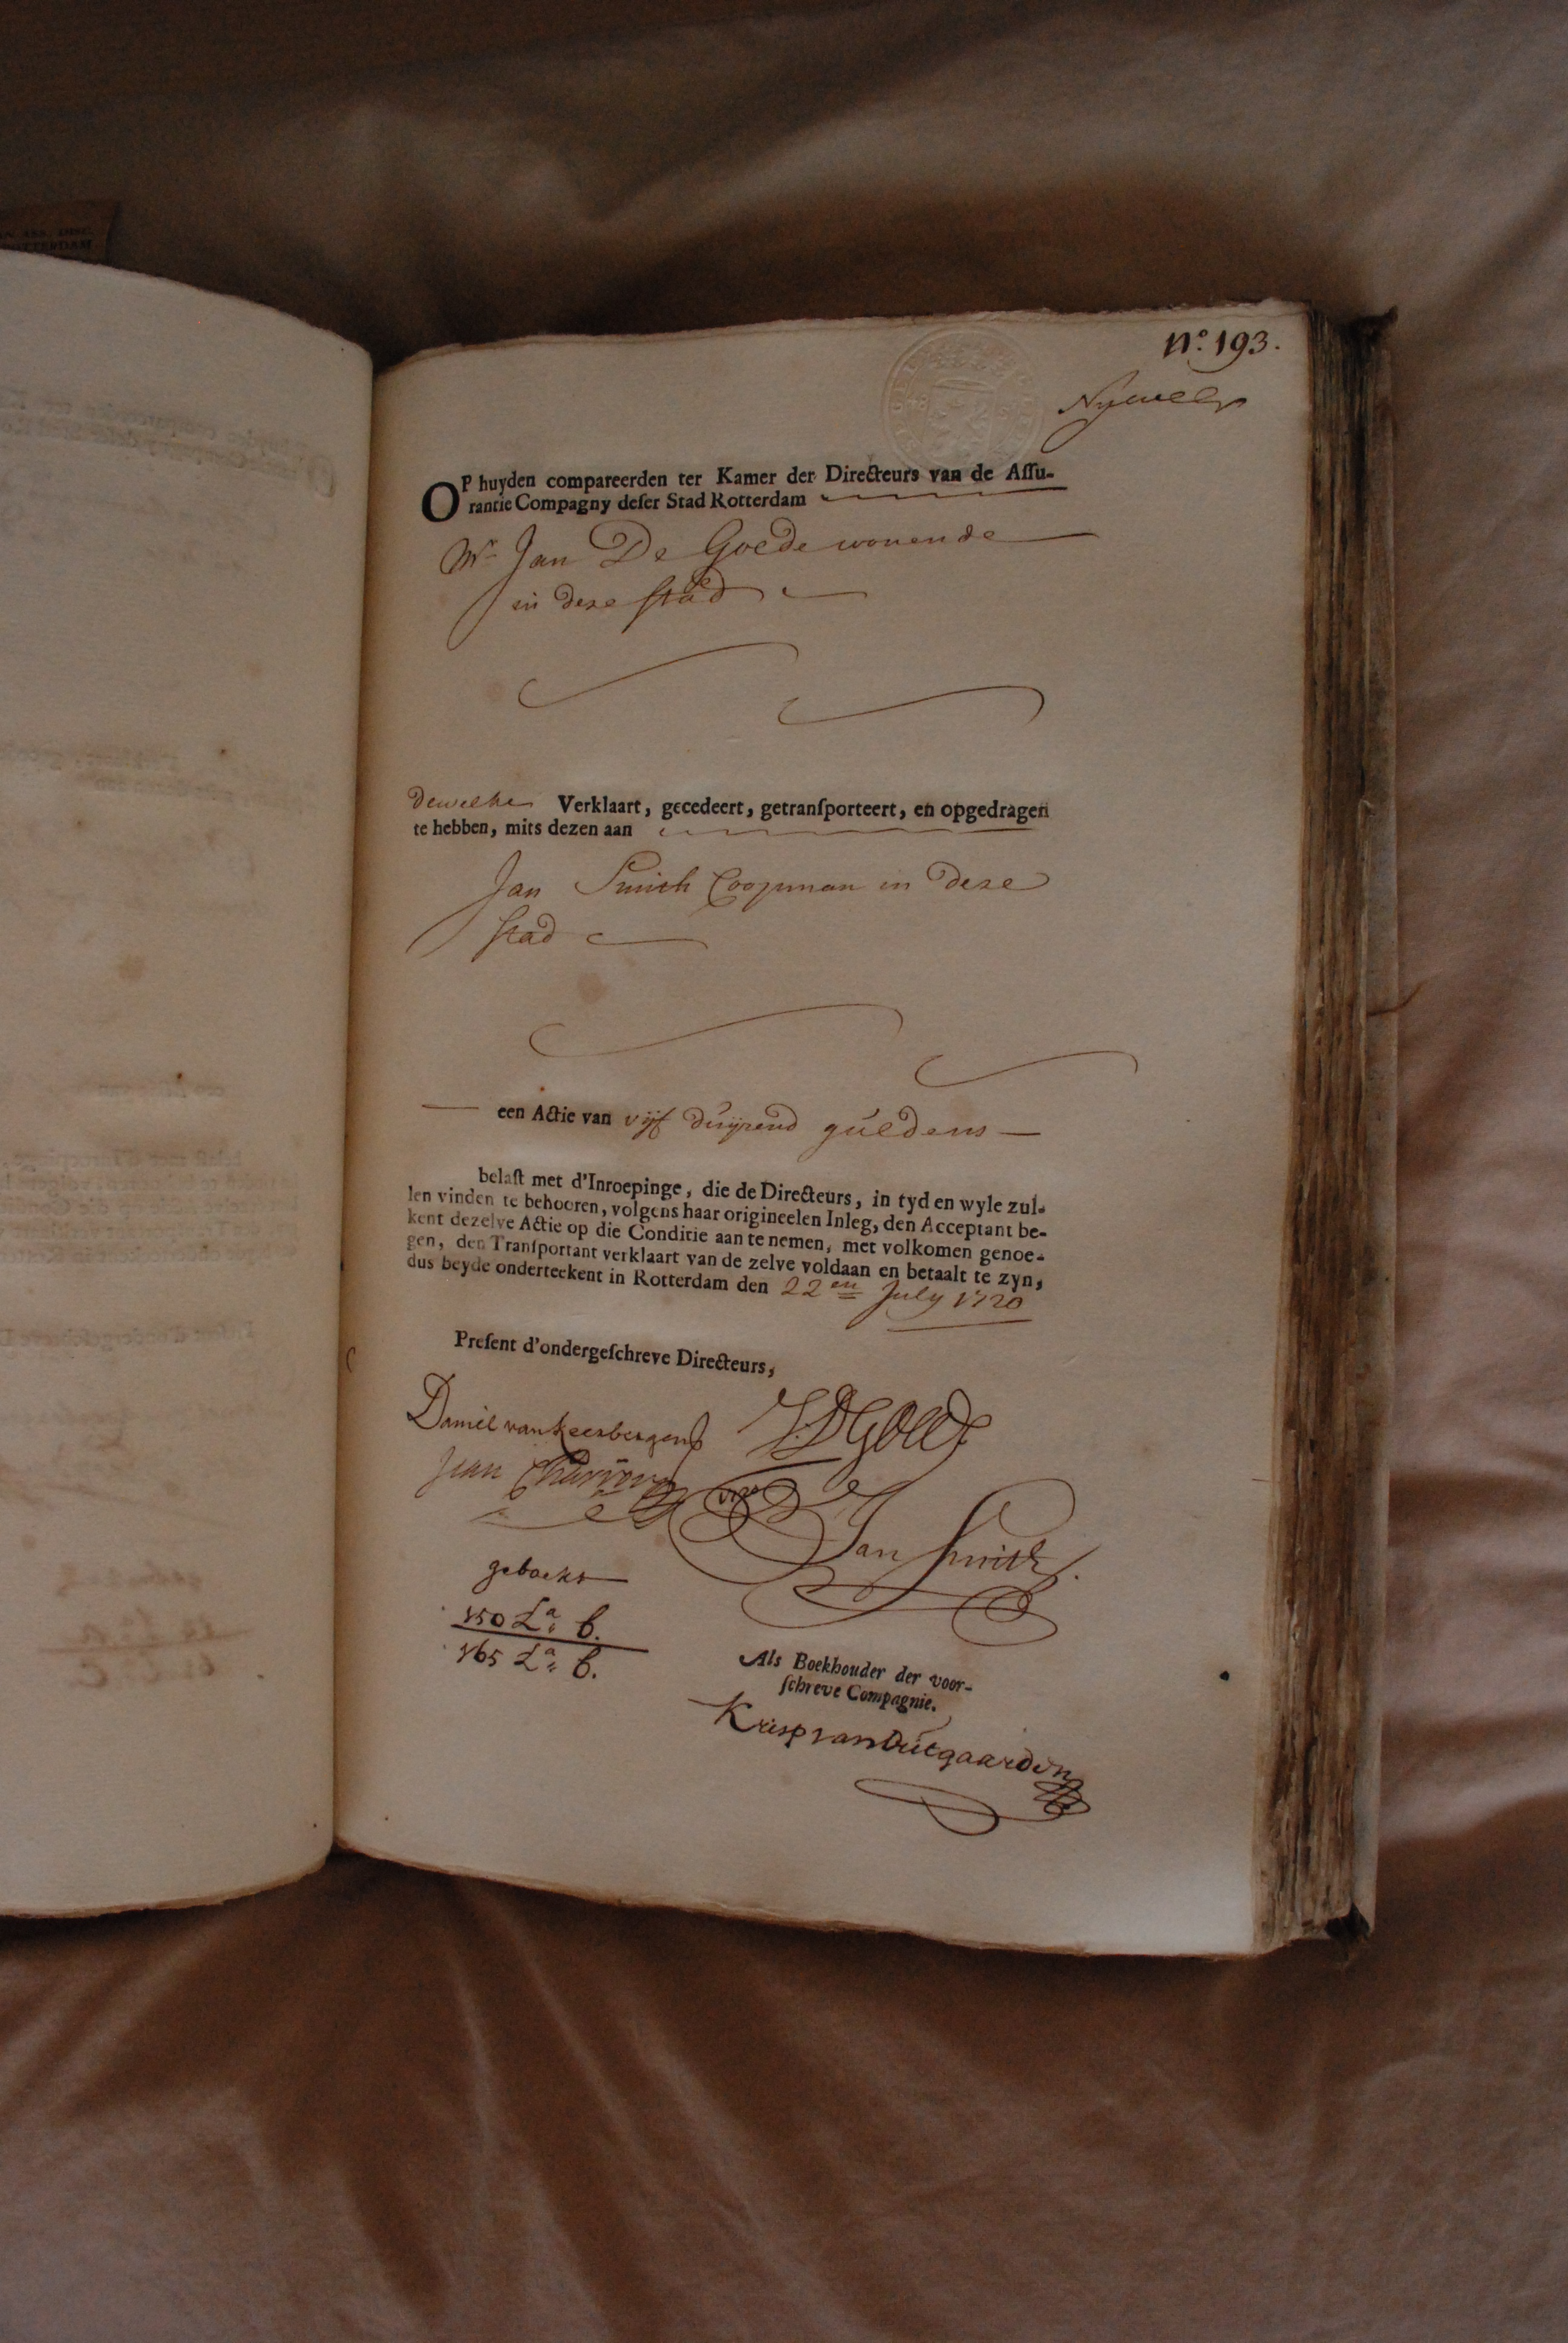 No. 193.
OP huyden compareerden ter Kamer der Directeurs van de Aſſu-
rantie Compagny deſer Stad Rotterdam
Mr. Jan De Goede wonende
in deze stad
dewelke Verklaart, gecedeert, getranſporteert, en opgedragen
te hebben, mits dezen aan
Jan Smith Coopman in deze
stad
een Actie van vijf duijzend guldens
belaſt met d'Inroepinge, die de Directeurs, in tyd en wyle zul-
len vinden te behooren, volgens haar origineelen Inleg, den Acceptant be-
kent dezelve Actie op die Conditie aan te nemen, met volkomen genoe-
gen, den Tranſportant verklaart van de zelve voldaan en betaalt te zyn,
dus beyde onderteekent in Rotterdam den 22en July 1720
Preſent d'ondergeſchreve Directeurs,
Daniel van Keesbergen
J. D Goede
Jean
Jan Smith
geboekt
150 La. b.
165 La. b.
Als Boekhouder der voor-
ſchreve Compagnie.
Krisp van Uitgaarden